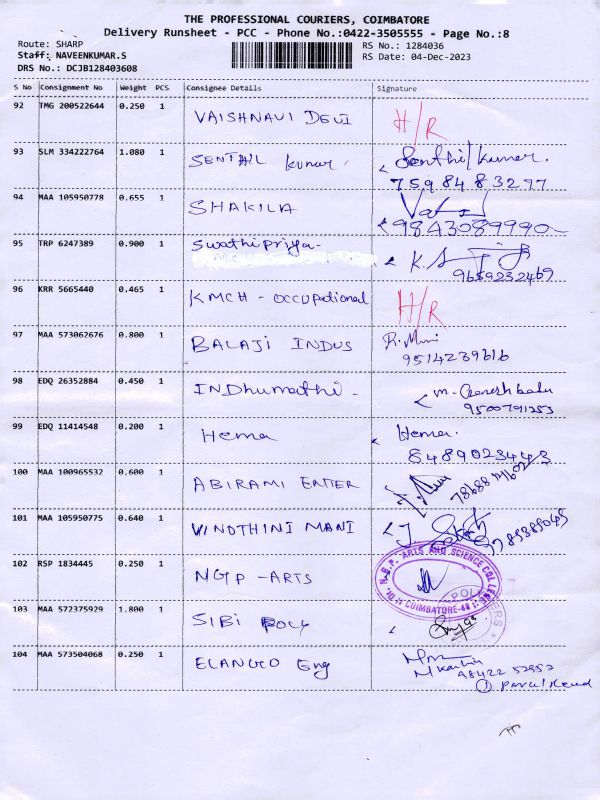 THE PROFESSIONAL COURIERS, COIMBATORE
Delivery Runsheet - PCC - Phone No.:0422-3505555 - Page No.:8
Route: SHARP
RS No.: 1284036
Staff: NAVEENKUMAR.S
RS Date: 04-Dec-2023
DRS No.: DCJB128403608
S No Consignment No Weight PCS Consignee Details Signature
92 TMG 200522644 0.250 1 VAISHNAVI DEVI H/R
93 SLM 334222764 1.080 1 SENTHIL kumar. Senthil kumar.
7598483297
94 MAA 105950778 0.655 1 SHAKILA
9843089990
95 TRP 6247389 0.900 1 Swathipriya-
9659232469
96 KRR 5665440 0.465 1 KMCH - occupational H/R
97 MAA 573062676 0.800 1 BALAJI INDUS
9514239616
98 EDQ 26352884 0.450 1 INDhumathi - m. Ganesh babu
9500791253
99 EDQ 11414548 0.200 1 Hema Hema.
8489023443
100 MAA 100965532 0.600 1 ABIRAMI ENTER
101 MAA 105950775 0.640 1 VINOTHINI MANI
102 RSP 1834445 0.250 1 NGP -ARTS
Dr. N.G.P. ARTS AND SCIENCE COLLEGE
COIMBATORE-48
103 MAA 572375929 1.800 1 SIBI
104 MAA 573504068 0.250 1 ELANGO Eng
98422 52952